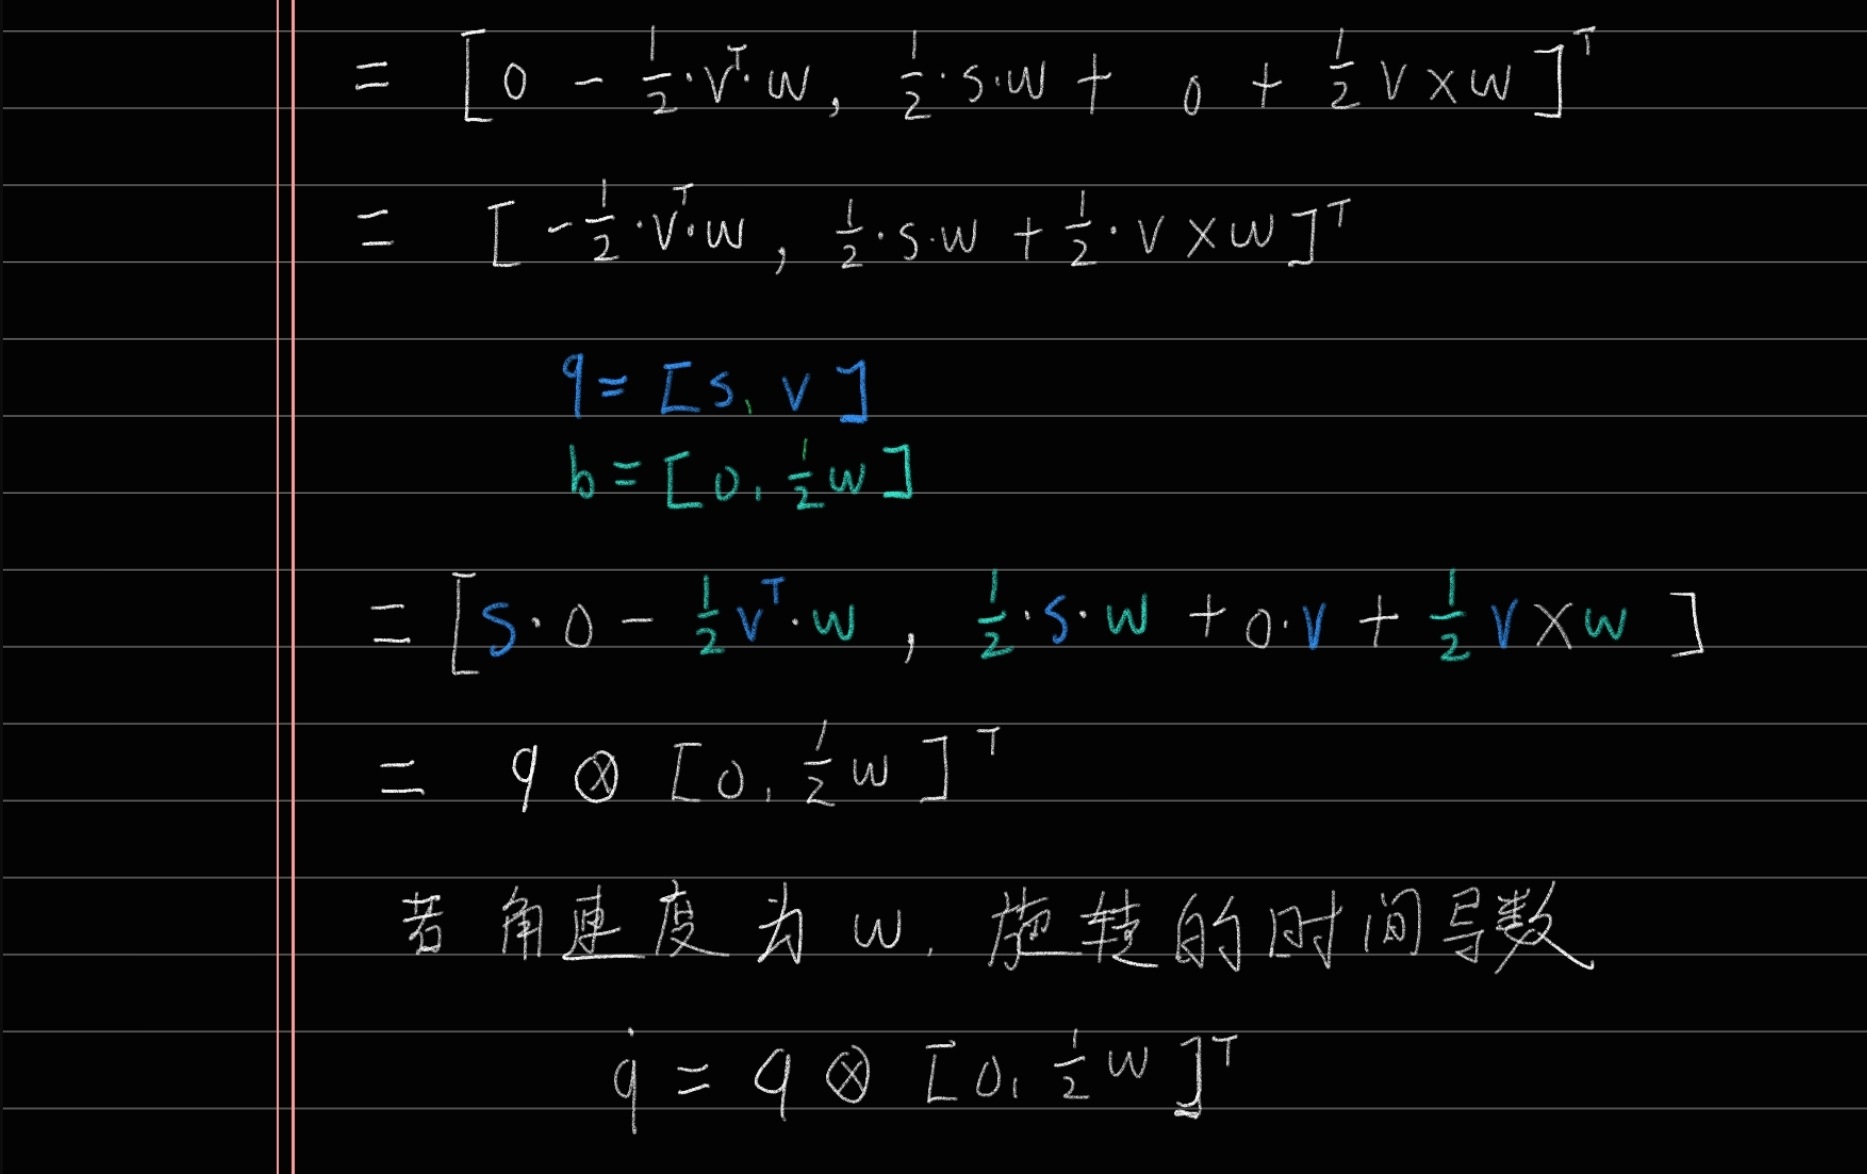 = [0 - 1/2·vᵀ·w, 1/2·s·w + 0 + 1/2 v×w]ᵀ
= [-1/2·vᵀ·w, 1/2·s·w + 1/2·v×w]ᵀ
q = [s, v]
b = [0, 1/2 w]
= [s·0 - 1/2 vᵀ·w, 1/2·s·w + 0·v + 1/2 v×w]
= q ⊗ [0, 1/2 w]ᵀ
若角速度为 w, 旋转的时间导数
q̇ = q ⊗ [0, 1/2 w]ᵀ